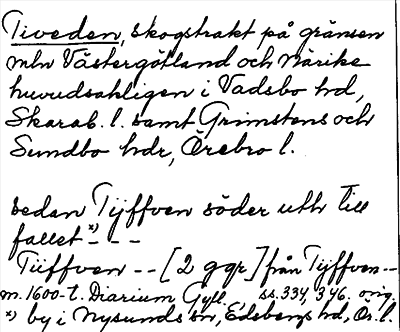 Tiveden, skogstrakt på gränsen
mln Västergötland och Närike
huvudsakligen i Vadsbo hd,
Skarab. l. samt Grimstens och
Sundbo hdr, Örebro l.
sedan Tÿffven söder uthr till
fallet *) - - -
Tüffven - - [2 ggr] från Tÿffven - -
m. 1600-t. Diarium Gyll., ss. 334, 346. orig.
*) by i Nysunds sn, Edsbergs hd, Ör. l.